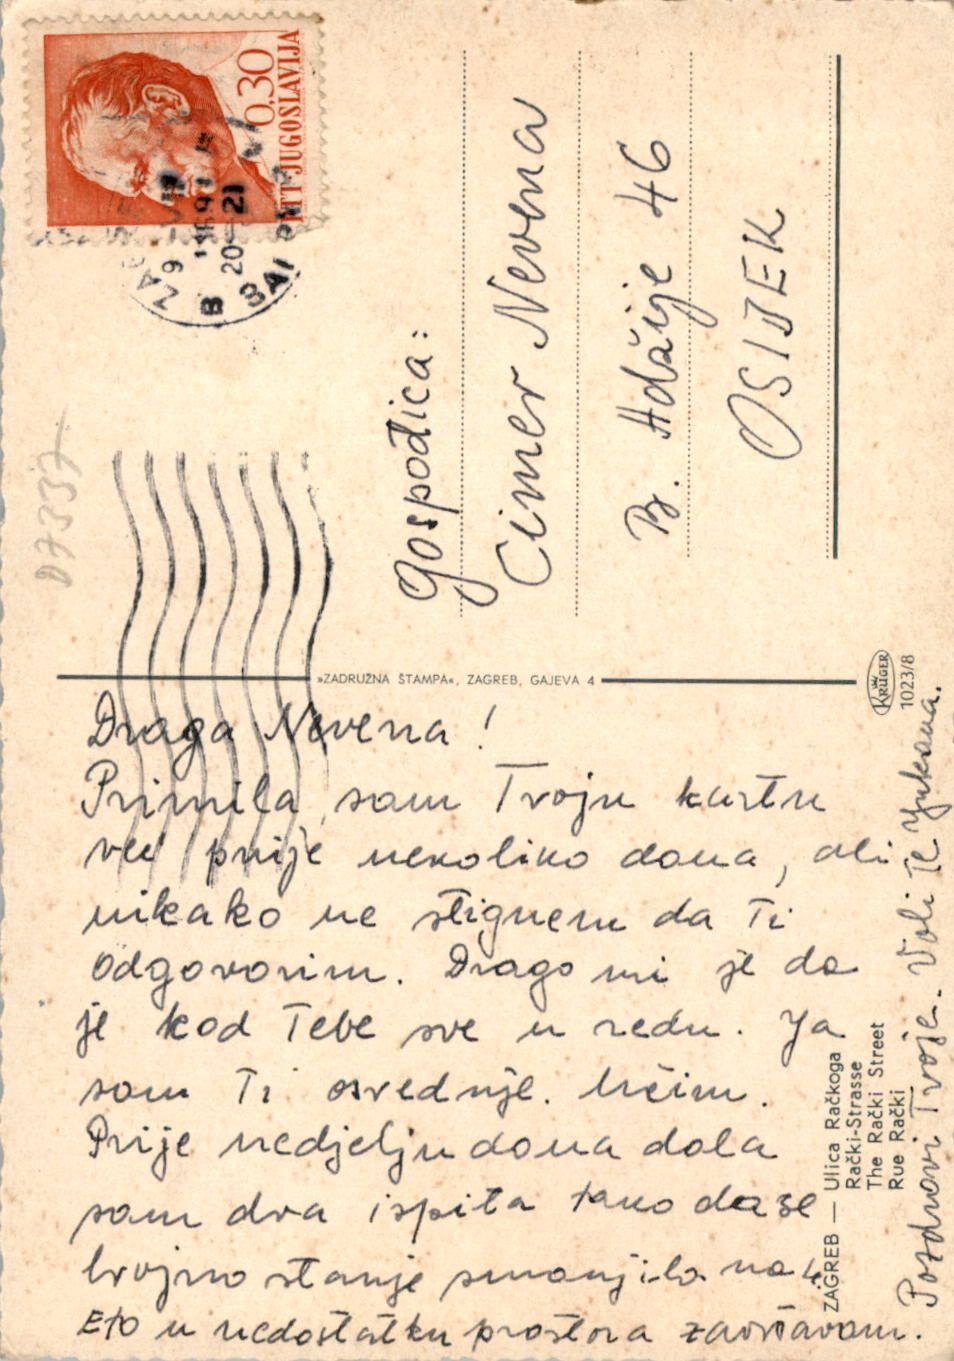 0,30
PTT JUGOSLAVIJA
20-21
D7337
Gospođica:
Cimer Nevena
B. Adžije 46
OSIJEK
»ZADRUŽNA ŠTAMPA«, ZAGREB, GAJEVA 4
KRÜGER
1023/8
Draga Nevena!
Primila sam Tvoju kartu
već prije nekoliko dana, ali
nikako ne stignem da Ti
odgovorim. Drago mi je da
je kod Tebe sve u redu. Ja
sam Ti osrednje. Učim.
Prije nedjelju dana dala
sam dva ispita tako da se
brojno stanje smanjilo na 4.
Eto u nedostatku prostora završavam.
Pozdravi Tvoje. Voli Te
ZAGREB — Ulica Račkoga
Rački-Strasse
The Rački Street
Rue Rački